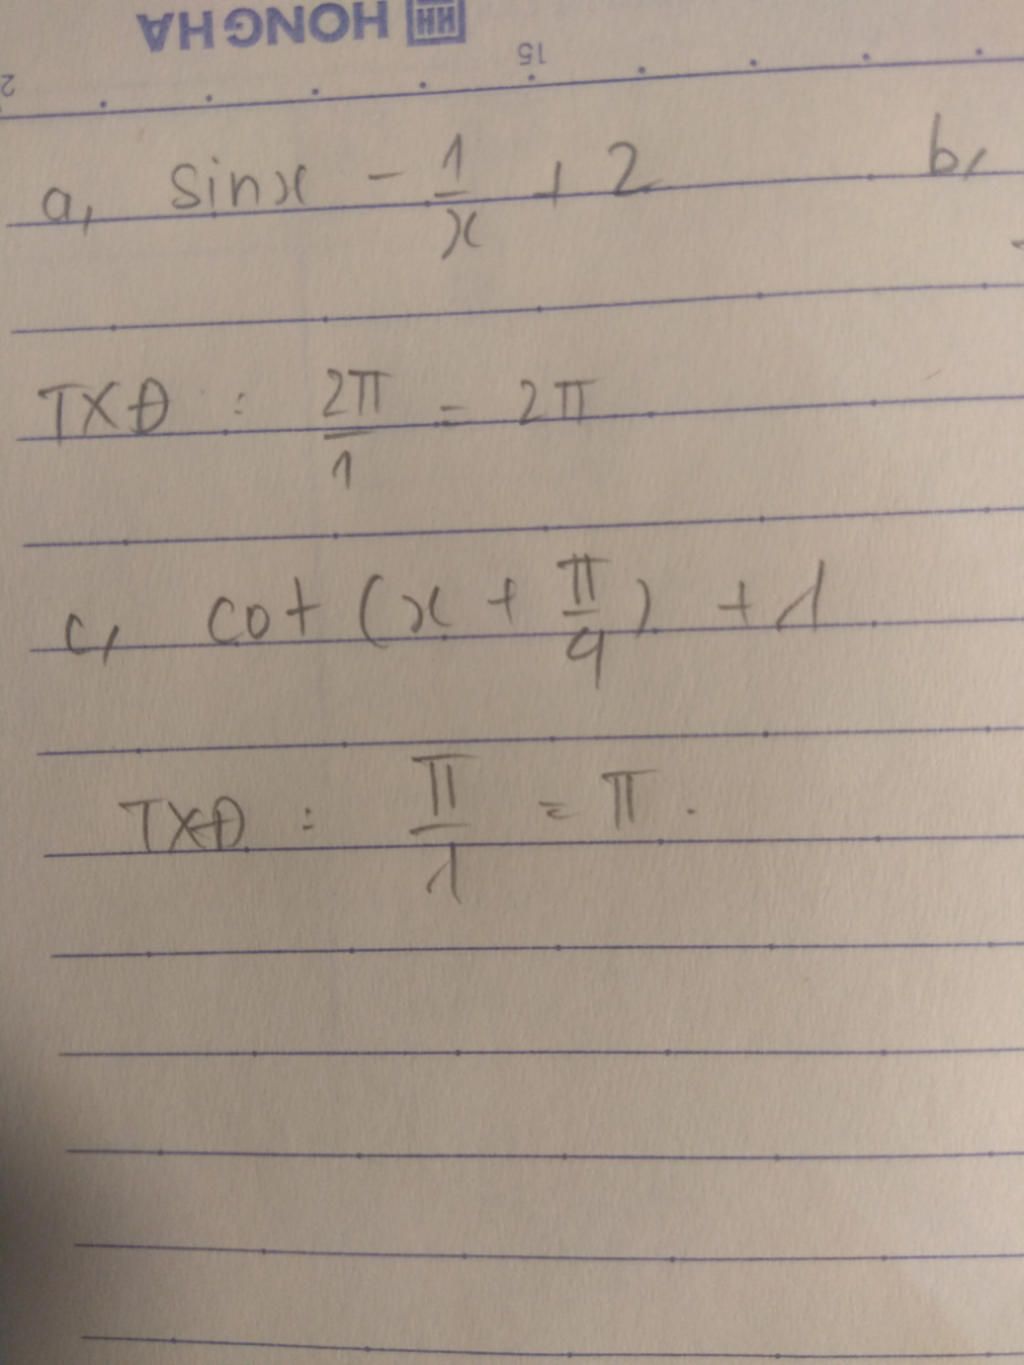 HONG HA HH
2 15
a, sinx - 1/x + 2 b,
TXĐ : 2π/1 = 2π
c, cot (x + π/4) + 1
TXĐ : π/1 = π .